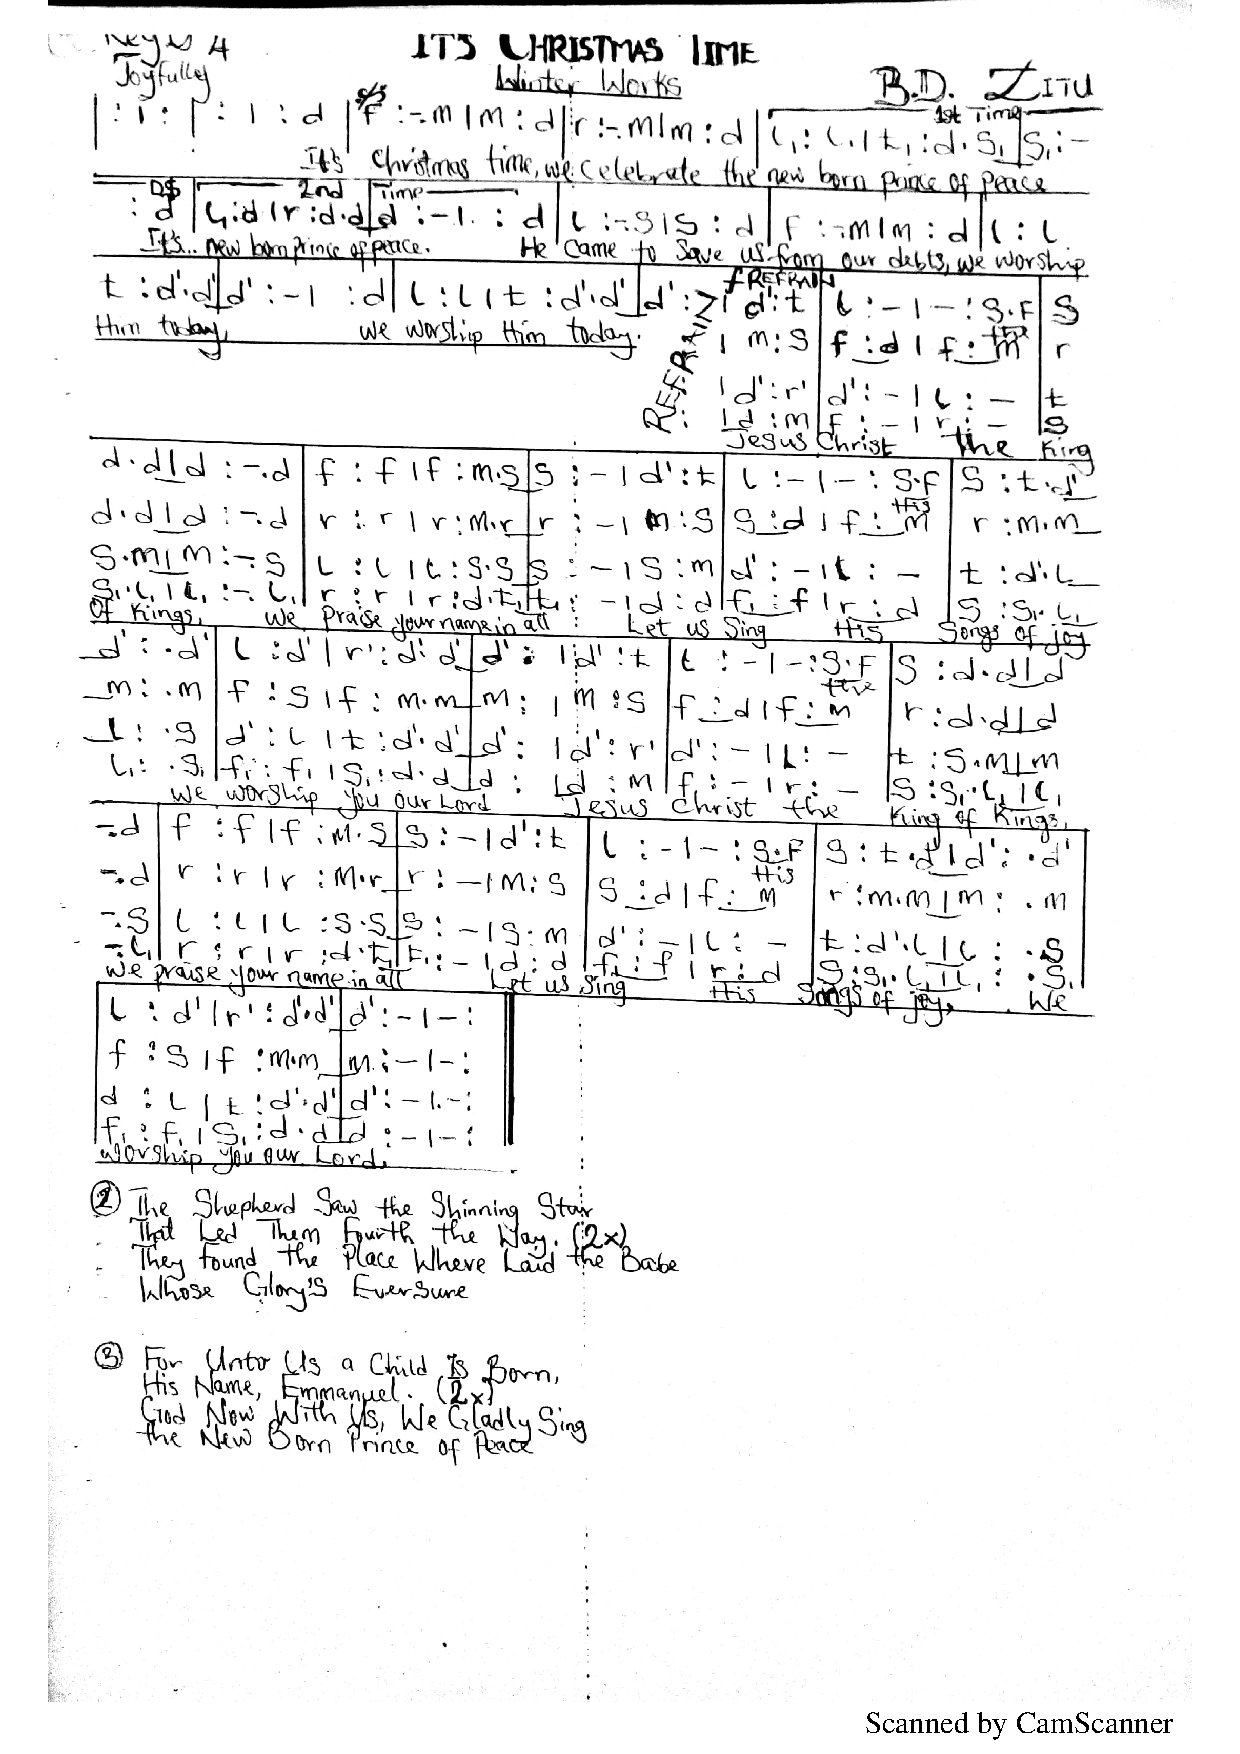 Key is 4
ITS CHRISTMAS TIME
Joyfully
Winter Works
B.D. ZITU
1st Time
| : : | : | : d | f :-.m | m : d | r :-.m | m : d | l₁ : l₁ . | t₁ : d . s₁ | s₁ : -
It's Christmas time, we celebrate the new born prince of peace
D$ 2nd Time
: d | l₁ : d | r : d.d | d : - | . : d | l :-.s | s : d | f :-.m | m : d | l : l .
It's... new born prince of peace. He came to save us from our debts, we worship
f REFRAIN
t : d'.d' | d' : - | : d | l : l | t : d'.d' | d' : | d' : t | l : - | - : s.f | s
Him today, we worship Him today.
REFRAIN
| m : s | f : d | f : m | r
the
| d' : r' | d' : - | l : - | t
| d : m | f : - | r : - | s
Jesus Christ the King
d.d | d :-.d | f : f | f : m.s | s : - | d' : t | l : - | - : s.f | s : t.d'
d.d | d :-.d | r : r | r : m.r | r : - | m : s | s : d | f : m | r : m.m
His
s.m | m :-.s | l : l | l : s.s | s : - | s : m | d' : - | l : - | t : d'.l
s₁.l₁ | l₁ :-.l₁ | r : r | r : d.t₁ | t₁ : - | d : d | f₁ : f | r : d | s : s₁.l₁
Of Kings, We praise your name in all Let us Sing His Songs of joy
d' : .d' | l : d' | r' : d'.d' | d' : | d' : t | l : - | - : s.f | s : d.d | d
m : .m | f : s | f : m.m | m : | m : s | f : d | f : m | r : d.d | d
the
l : .s | d' : l | t : d'.d' | d' : | d' : r' | d' : - | l : - | t : s.m | m
l₁ : .s₁ | f₁ : f₁ | s₁ : d.d | d : | d : m | f : - | r : - | s : s₁.l₁ | l₁
We worship you our Lord Jesus Christ the King of Kings,
-.d | f : f | f : m.s | s : - | d' : t | l : - | - : s.f | s : t.d' | d' : .d'
-.d | r : r | r : m.r | r : - | m : s | s : d | f : m | r : m.m | m : .m
His
-.s | l : l | l : s.s | s : - | s : m | d' : - | l : - | t : d'.l | l : .s
-.l₁ | r : r | r : d.t₁ | t₁ : - | d : d | f₁ : f | r : d | s : s₁.l₁ | l₁ : .s₁
We praise your name in all Let us Sing His Songs of joy, We
l : d' | r' : d'.d' | d' : - | - :
f : s | f : m.m | m : - | - :
d : l | t : d'.d' | d' : - | - :
f₁ : f₁ | s₁ : d.d | d : - | - :
Worship you our Lord.
② The Shepherd Saw the Shinning Star
That Led Them Fourth the Way. (2x)
They found the Place Where Laid the Babe
Whose Glory's Eversure
③ For Unto Us a Child Is Born,
His Name, Emmanuel. (2x)
God Now With Us, We Gladly Sing
the New Born Prince of Peace
Scanned by CamScanner